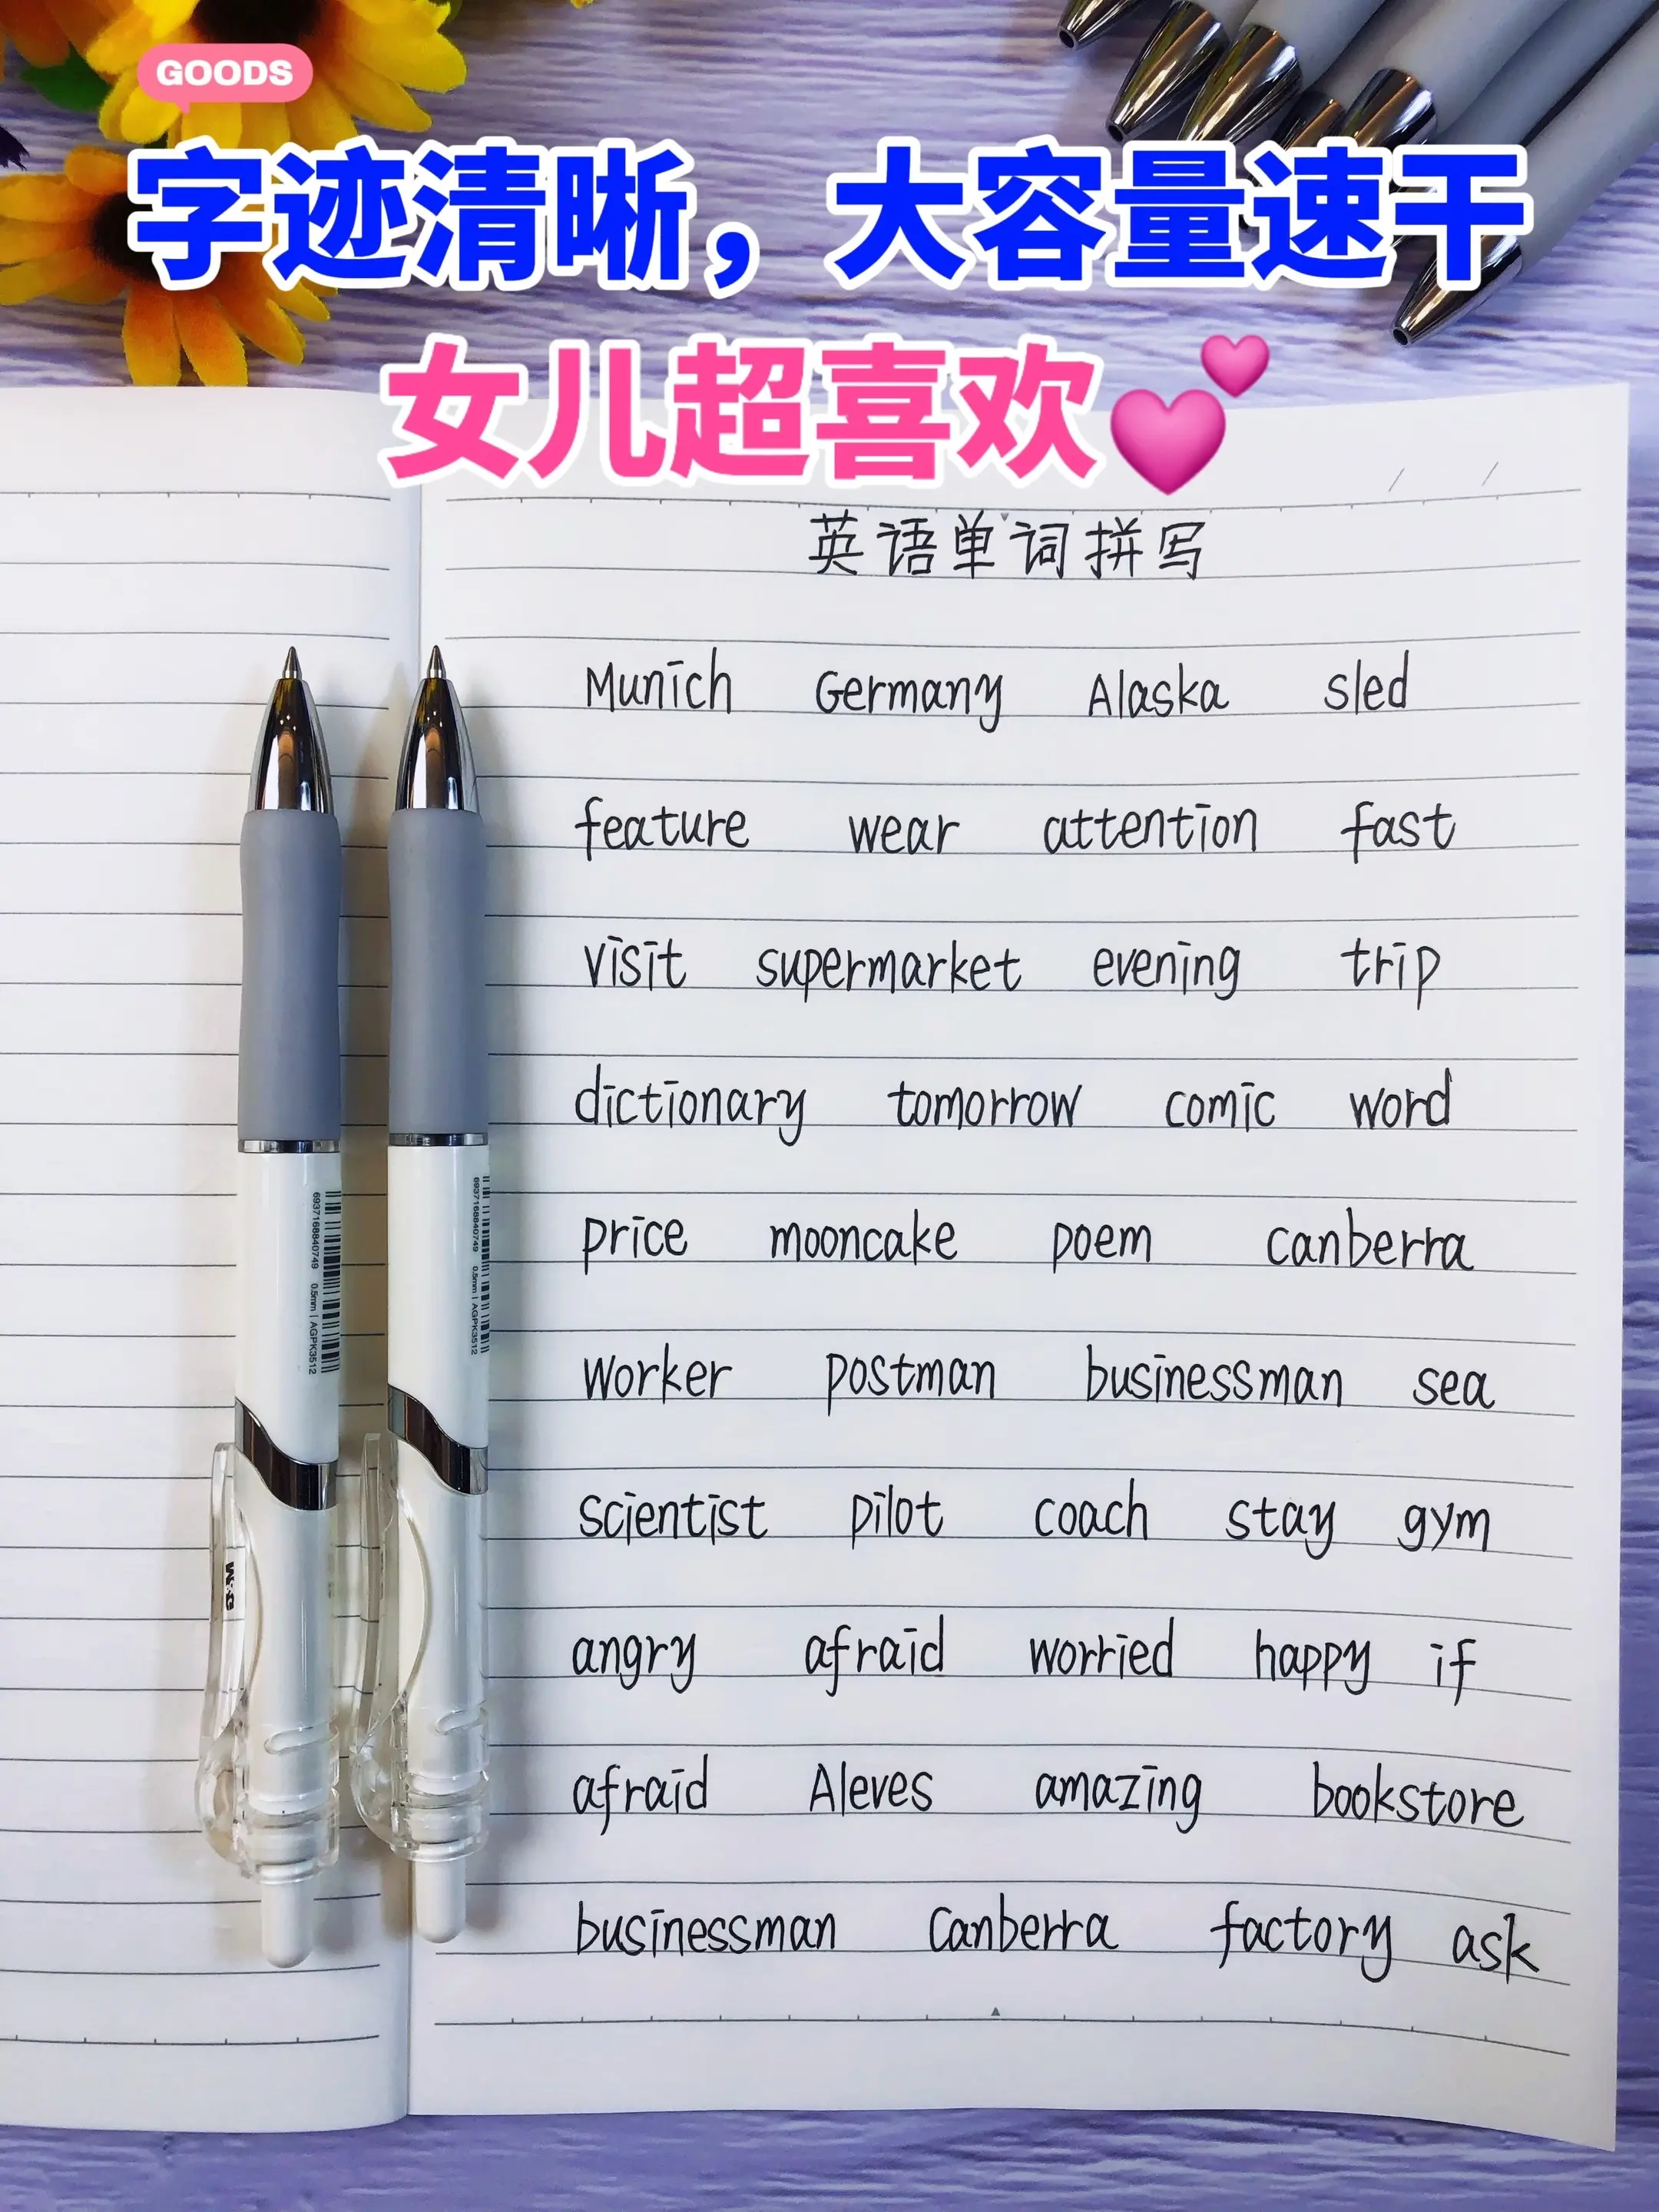 GOODS
字迹清晰，大容量速干
女儿超喜欢💕
英语单词拼写
Munich Germany Alaska sled
feature wear attention fast
visit supermarket evening trip
dictionary tomorrow comic word
price mooncake poem canberra
worker postman businessman sea
scientist pilot coach stay gym
angry afraid worried happy if
afraid Aleves amazing bookstore
businessman Canberra factory ask
6937168840749 0.5mm | AGPK3512
6937168840749 0.5mm | AGPK3512
M&G